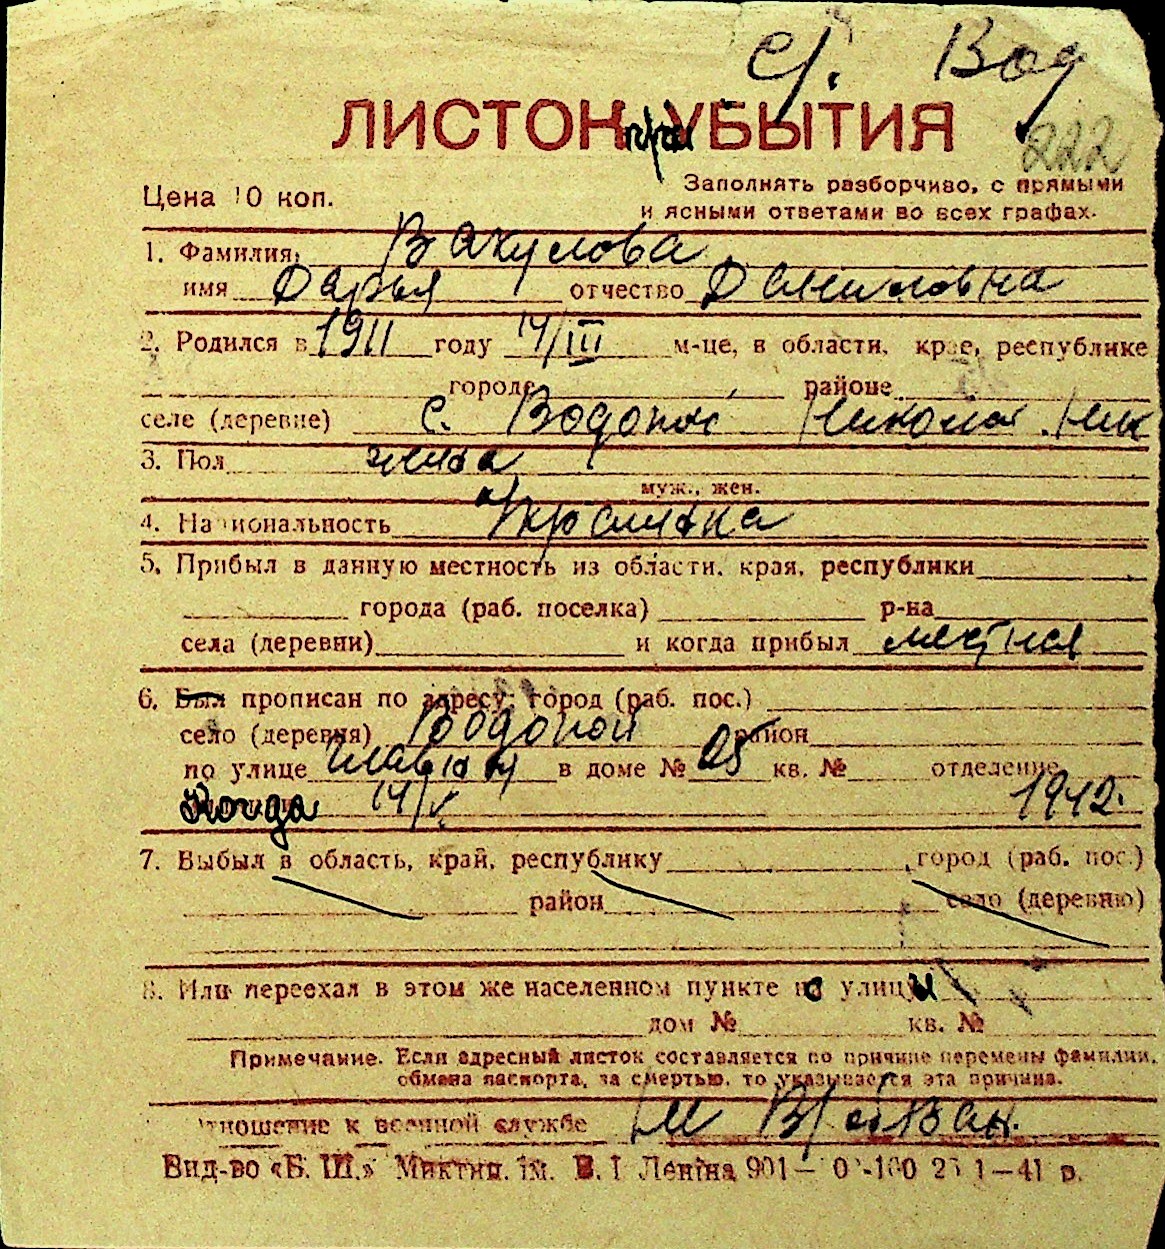 с. Вод
ЛИСТОК при УБЫТИЯ
222
Цена 10 коп.
Заполнять разборчиво, с прямыми
и ясными ответами во всех графах.
1. Фамилия, Вакулова
имя Дарья отчество Даниловна
2. Родился в 1911 году 14/III м-це, в области, крае, республике
городе районе
селе (деревне) с. Водопой Николаев. Ник
3. Пол жінка
муж., жен.
4. Национальность Украинка
5. Прибыл в данную местность из области, края, республики
города (раб. поселка) р-на
села (деревни) и когда прибыл местная
6. Был прописан по адресу: город (раб. пос.)
село (деревня) Водопой район
по улице в доме № 25 кв. № отделение
Когда 14/V 1942.
7. Выбыл в область, край, республику город (раб. пос.)
район село (деревню)
8. Или переехал в этом же населенном пункте с улицы
дом № кв. №
Примечание. Если адресный листок составляется по причине перемены фамилии,
обмена паспорта, за смертью, то указывается эта причина.
тношение к военной службе
Вид-во «Б. Ш.» Миктип. ім. В. І Леніна 901—